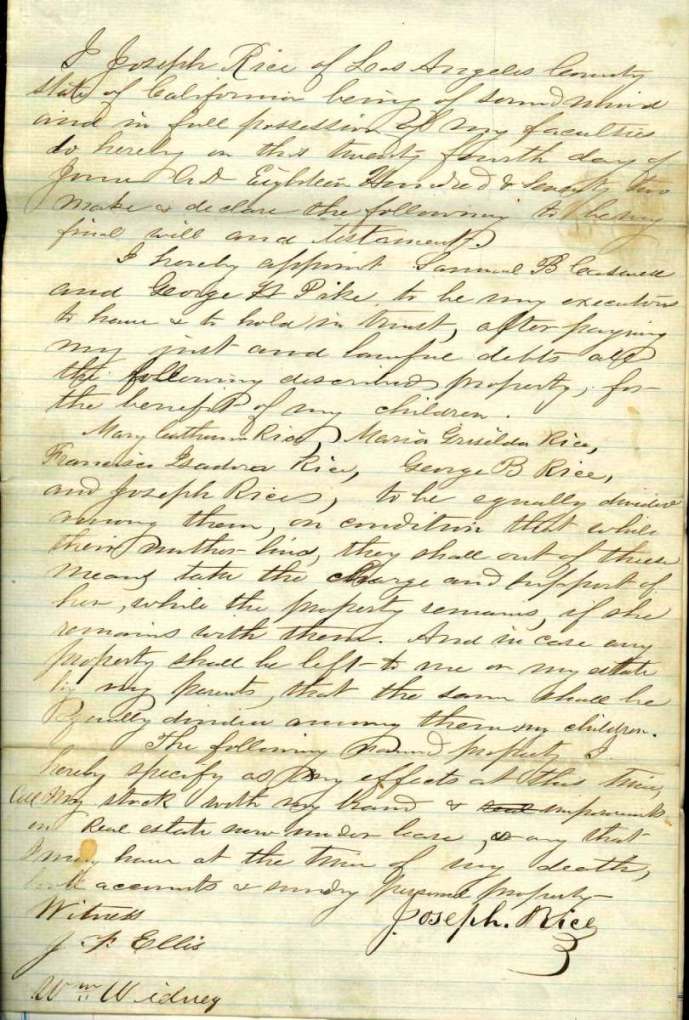 I Joseph Rice of Los Angeles County
State of California being of sound mind
and in full possession of my faculties
do hereby on this twenty fourth day of
June A.D. Eighteen Hundred & Seventy two
make & declare the following to be my
final will and testament.
I hereby appoint Samuel B Caswell
and George H Pike, to be my executors
to have & to hold in trust, after paying
my just and lawful debts all
the following described property, for
the benefit of my children.
Mary Catherine Rice, Maria Grisilda Rice,
Francisca Isadora Rice, George B Rice,
and Joseph Rice, to be equally divided
among them, on condition that while
their mother lives, they shall out of these
means take the charge and support of
her, while the property remains, if she
remains with them. And in case any
property shall be left to me or my estate
by my parents, that the same shall be
Equally divided among them my children.
The following named property I
hereby specify as my effects at this time,
All my stock with my brand & improvements
on Real estate now under lease, & any that
I may have at the time of my death,
accounts & sundry personal property
Witness Joseph. Rice
J F Ellis
Wm Widney